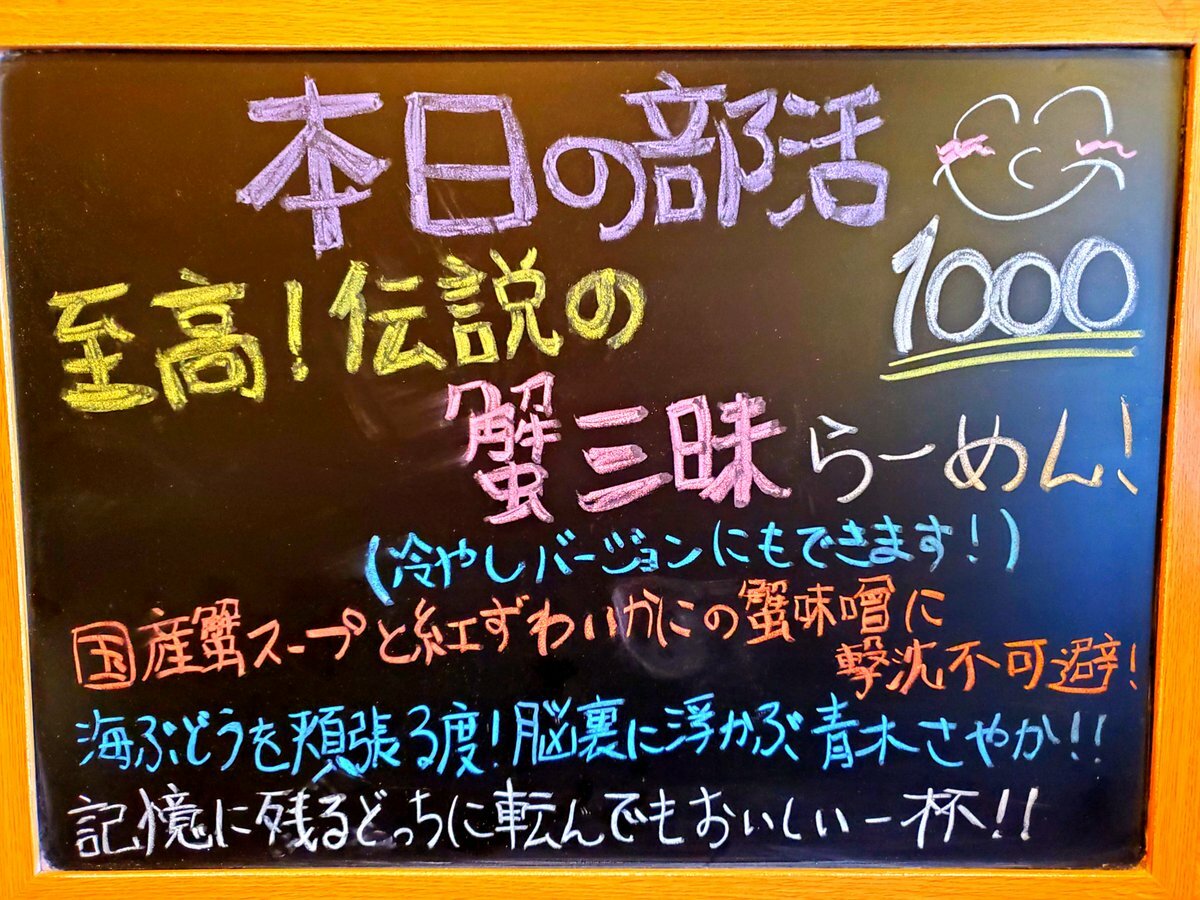 本日の部活
至高！伝説の
1000
蟹三昧らーめん！
(冷やしバージョンにもできます！)
国産蟹スープと紅ずわいかにの蟹味噌に
撃沈不可避！
海ぶどうを頬張る度！脳裏に浮かぶ青木さやか！！
記憶に残るどっちに転んでもおいしい一杯！！